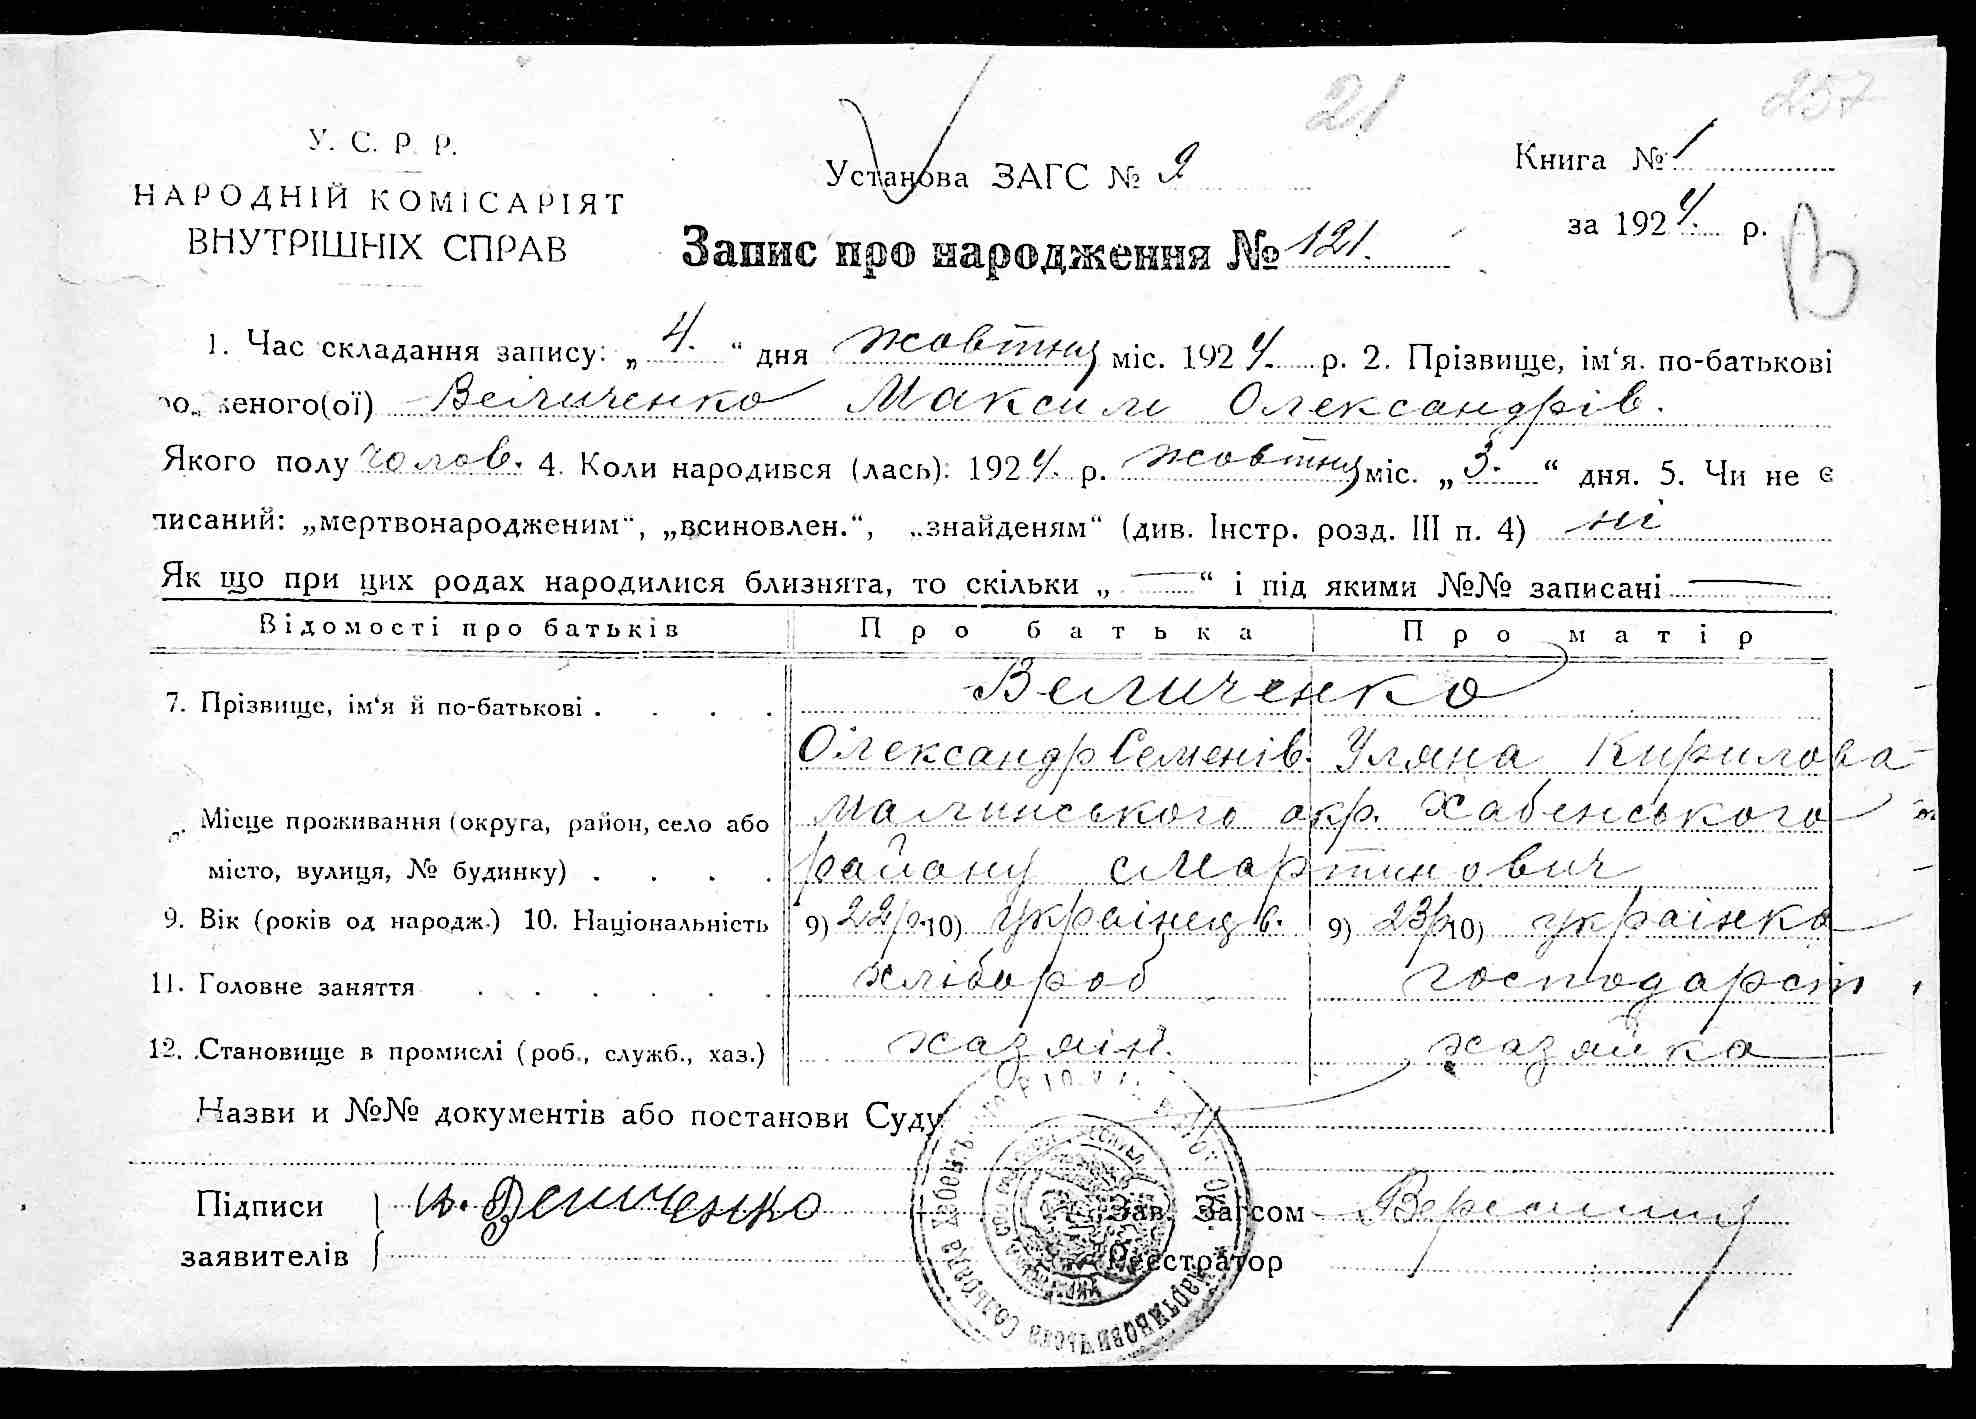 21
257
У. С. Р. Р.
НАРОДНІЙ КОМІСАРІЯТ
ВНУТРІШНІХ СПРАВ
Установа ЗАГС № 2
Книга № 1
за 1924 р.
В
Запис про народження № 121.
1. Час складання запису: „ 4. “ дня жовтня міс. 1924. р. 2. Прізвище, ім‘я. по-батькові
женого(ої) Величенко Максим Олександрів.
Якого полу чолов. 4. Коли народився (лась): 1924. р. жовтня міс. „ 3. “ дня. 5. Чи не є
писаний: „мертвонародженим“, „всиновлен.“, „знайденям“ (див. Інстр. розд. III п. 4) ні
Як що при цих родах народилися близнята, то скільки „ — “ і під якими №№ записані —
Відомості про батьків Про батька Про матір
7. Прізвище, ім‘я й по-батькові . . . . Величенко
Олександр Семенів. Уляна Кирилова
Місце проживання (округа, район, село або Малинського окр. Хабенського
місто, вулиця, № будинку) . . . . району с Мартинович
9. Вік (років од народж.) 10. Національність 9) 22 р. 10) українец в. 9) 23 р. 10) українка
11. Головне заняття . . . . . . хлібороб господарст
12. Становище в промислі (роб., служб., хаз.) хазяін. хазяйка
Назви и №№ документів або постанови Суду
Підписи Величенко Зав. Загсом
заявителів Реєстратор